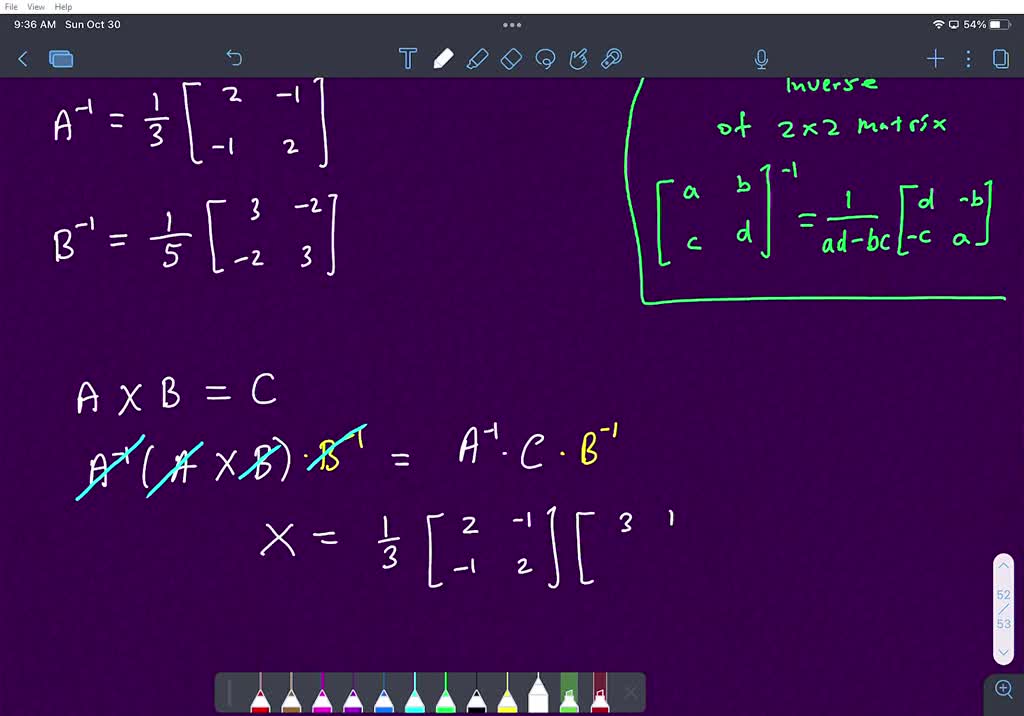 File View Help
9:36 AM Sun Oct 30
54%
T
A⁻¹ = 1/3 [2 -1
-1 2]
B⁻¹ = 1/5 [3 -2
-2 3]
Inverse
of 2x2 matrix
[a b
c d]⁻¹ = 1/(ad-bc) [d -b
-c a]
A X B = C
A⁻¹(A X B)·B⁻¹ = A⁻¹·C·B⁻¹
X = 1/3 [2 -1
-1 2] [3 1
52
/
53